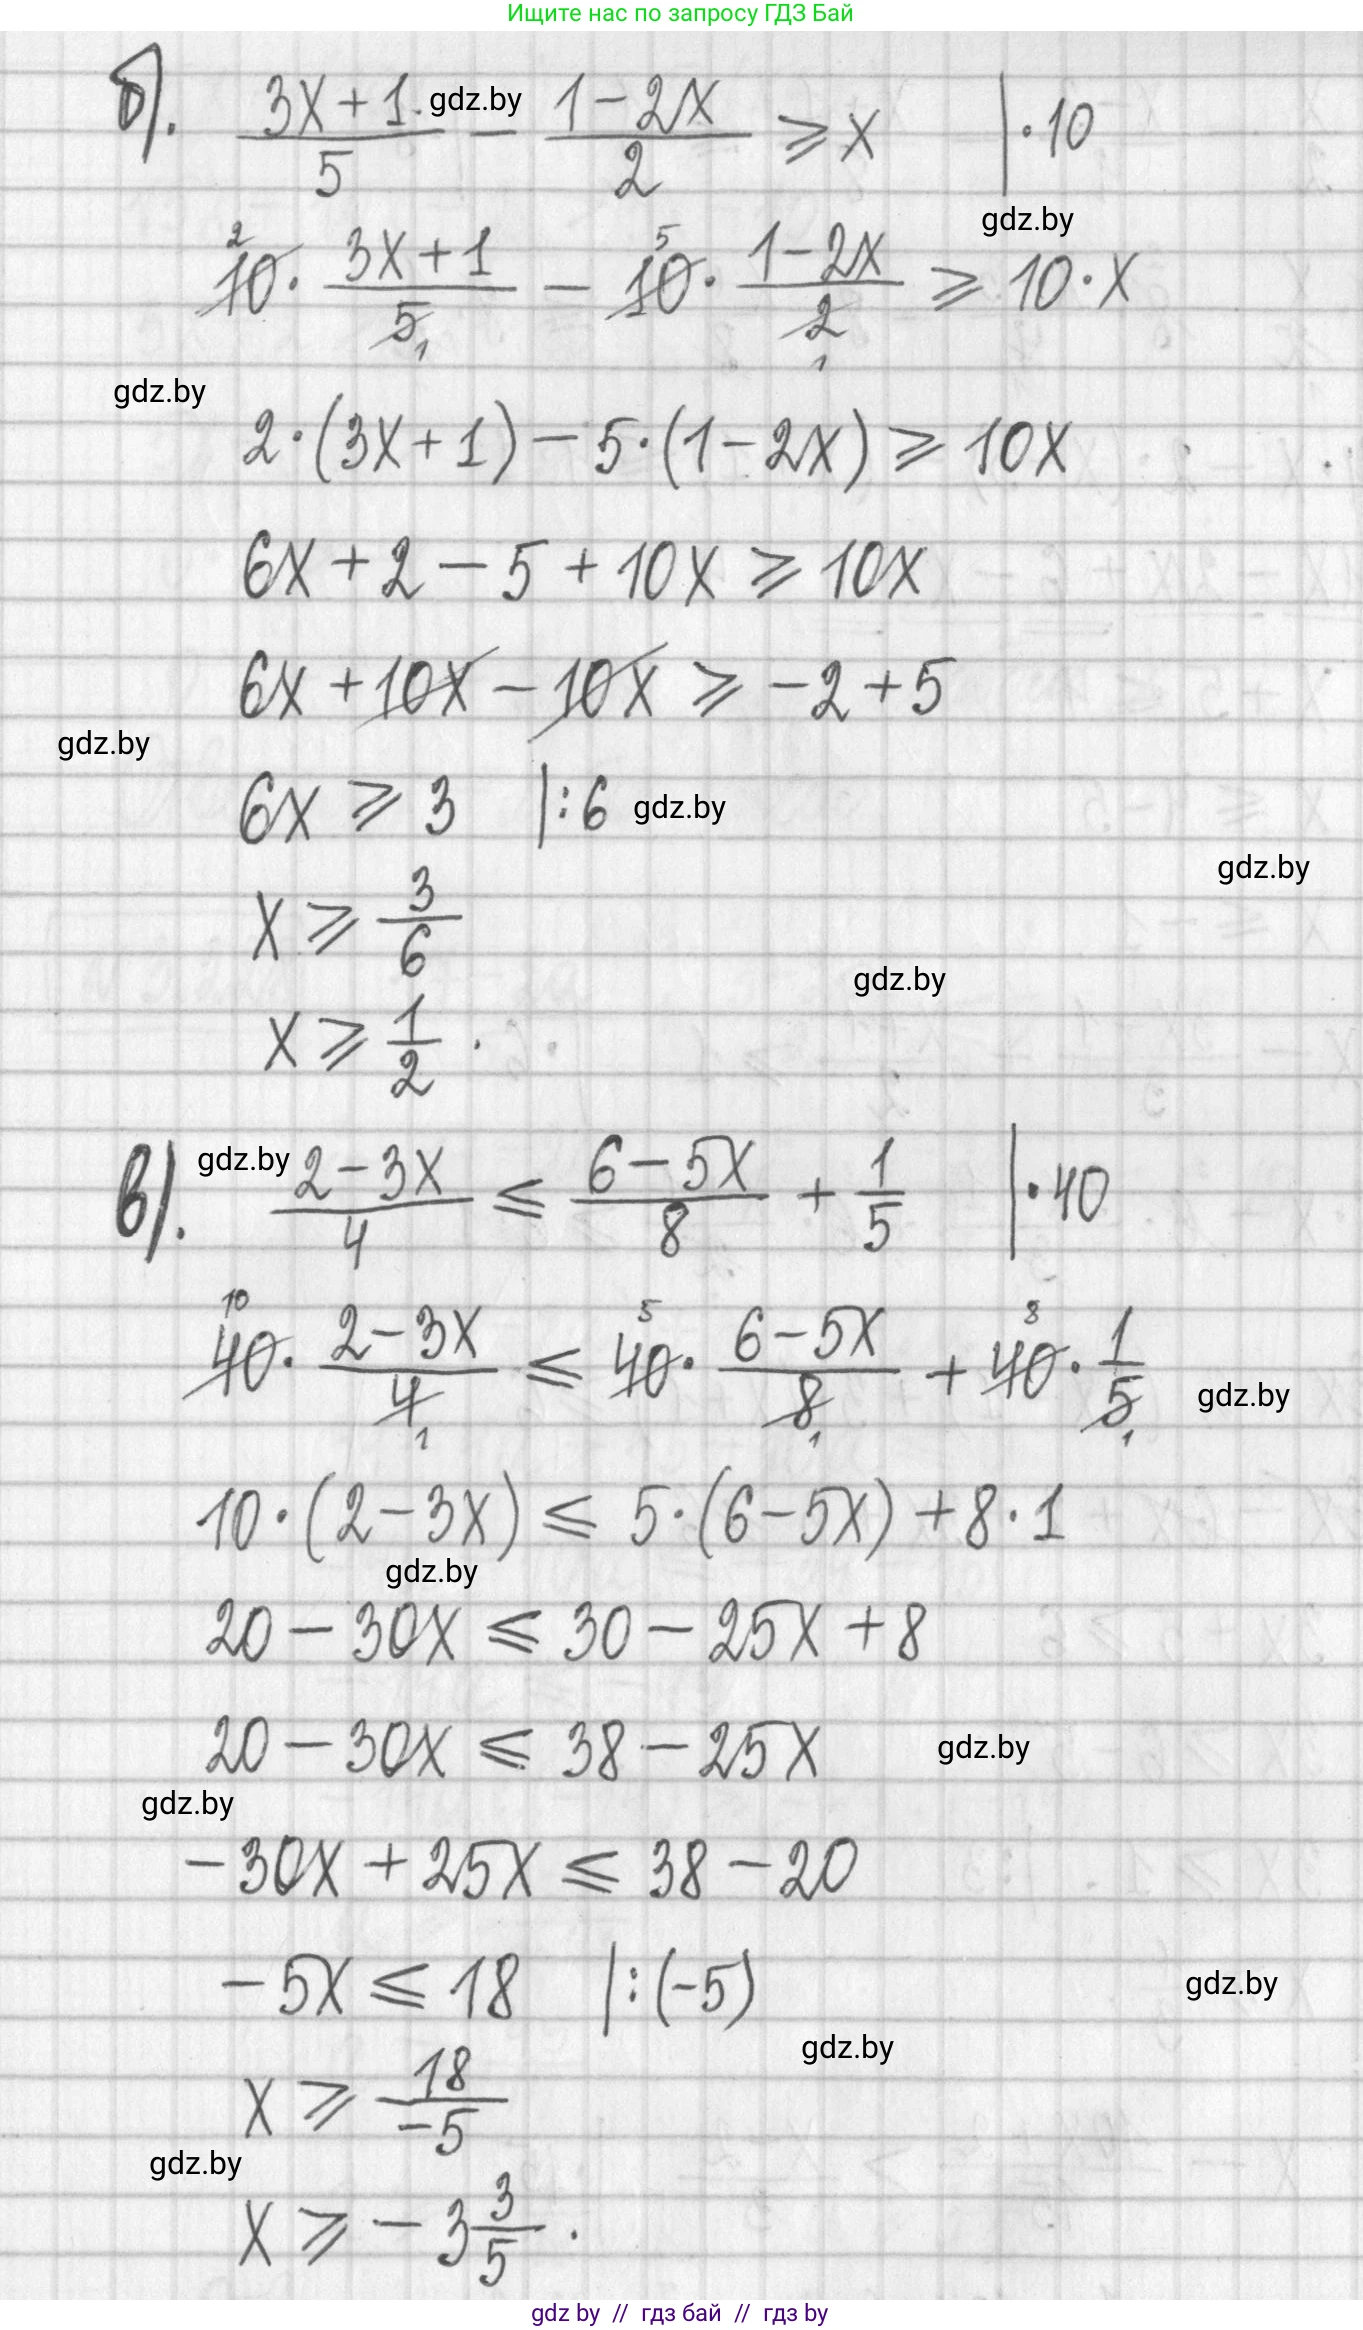 Ищите нас по запросу ГДЗ Бай
б). (3x+1)/5 gdz.by − (1−2x)/2 ⩾ x |·10
gdz.by
2 5
10 · (3x+1)/5 − 10 · (1−2x)/2 ⩾ 10·x
1 1
gdz.by
2·(3x+1) − 5·(1−2x) ⩾ 10x
6x + 2 − 5 + 10x ⩾ 10x
6x + 10x − 10x ⩾ −2 + 5
gdz.by
6x ⩾ 3 |:6 gdz.by
gdz.by
x ⩾ 3/6
gdz.by
x ⩾ 1/2 .
в). gdz.by (2−3x)/4 ⩽ (6−5x)/8 + 1/5 |·40
10 5 8
40 · (2−3x)/4 ⩽ 40 · (6−5x)/8 + 40 · 1/5 gdz.by
1 1 1
10·(2−3x) ⩽ 5·(6−5x) + 8·1
gdz.by
20 − 30x ⩽ 30 − 25x + 8
20 − 30x ⩽ 38 − 25x gdz.by
gdz.by
−30x + 25x ⩽ 38 − 20
−5x ⩽ 18 |:(−5) gdz.by
gdz.by
x ⩾ 18/−5
gdz.by
x ⩾ −3 3/5 .
gdz by // гдз бай // гдз by